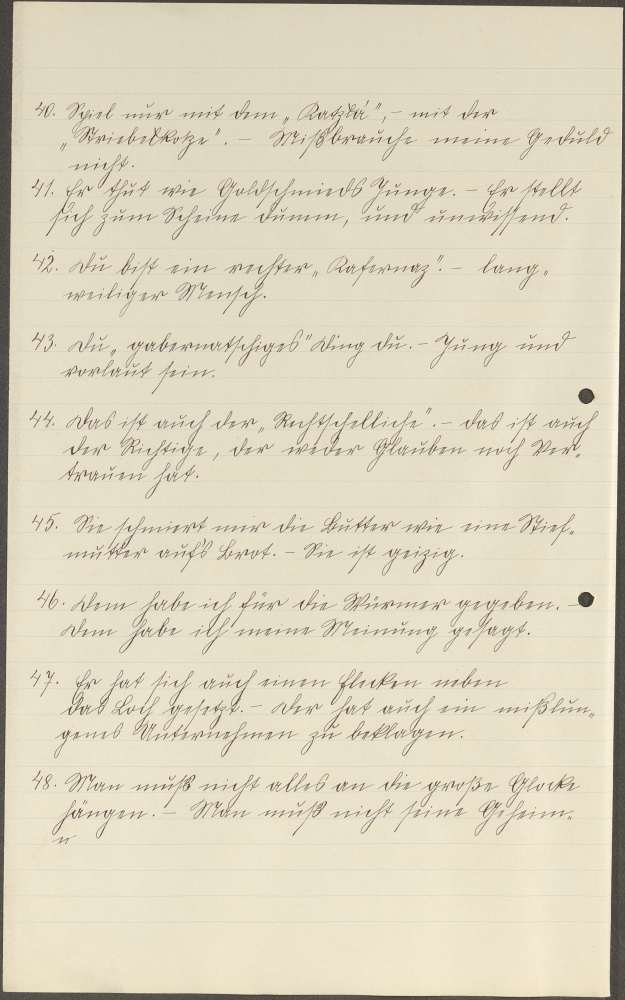 40. Spiel nur mit dem „Katzlá", – mit der
„Striebelkotze". – Mißbrauche meine Geduld
nicht.
41. Er thut wie Goldschmieds Junge. – Er stellt
sich zum Scheine dumm, und unwissend.
42. Du bist ein rechter „Kafernaz". – lang-
weiliger Mensch.
43. Du „gabernatschiges" Ding du. – Jung und
vorlaut sein.
44. Das ist auch der „Rechtschelliche". – das ist auch
der Richtige, der weder Glauben noch Ver-
trauen hat.
45. Sie schmiert mir die Butter wie eine Stief-
mutter auf's Brot. – Sie ist geizig.
46. Dem habe ich für die Würmer gegeben. –
Dem habe ich meine Meinung gesagt.
47. Er hat sich auch einen Flecken neben
das Loch gesetzt. – Der hat auch ein mißlun-
genes Unternehmen zu beklagen.
48. Man muß nicht alles an die große Glocke
hängen. – Man muß nicht seine Geheim-
n